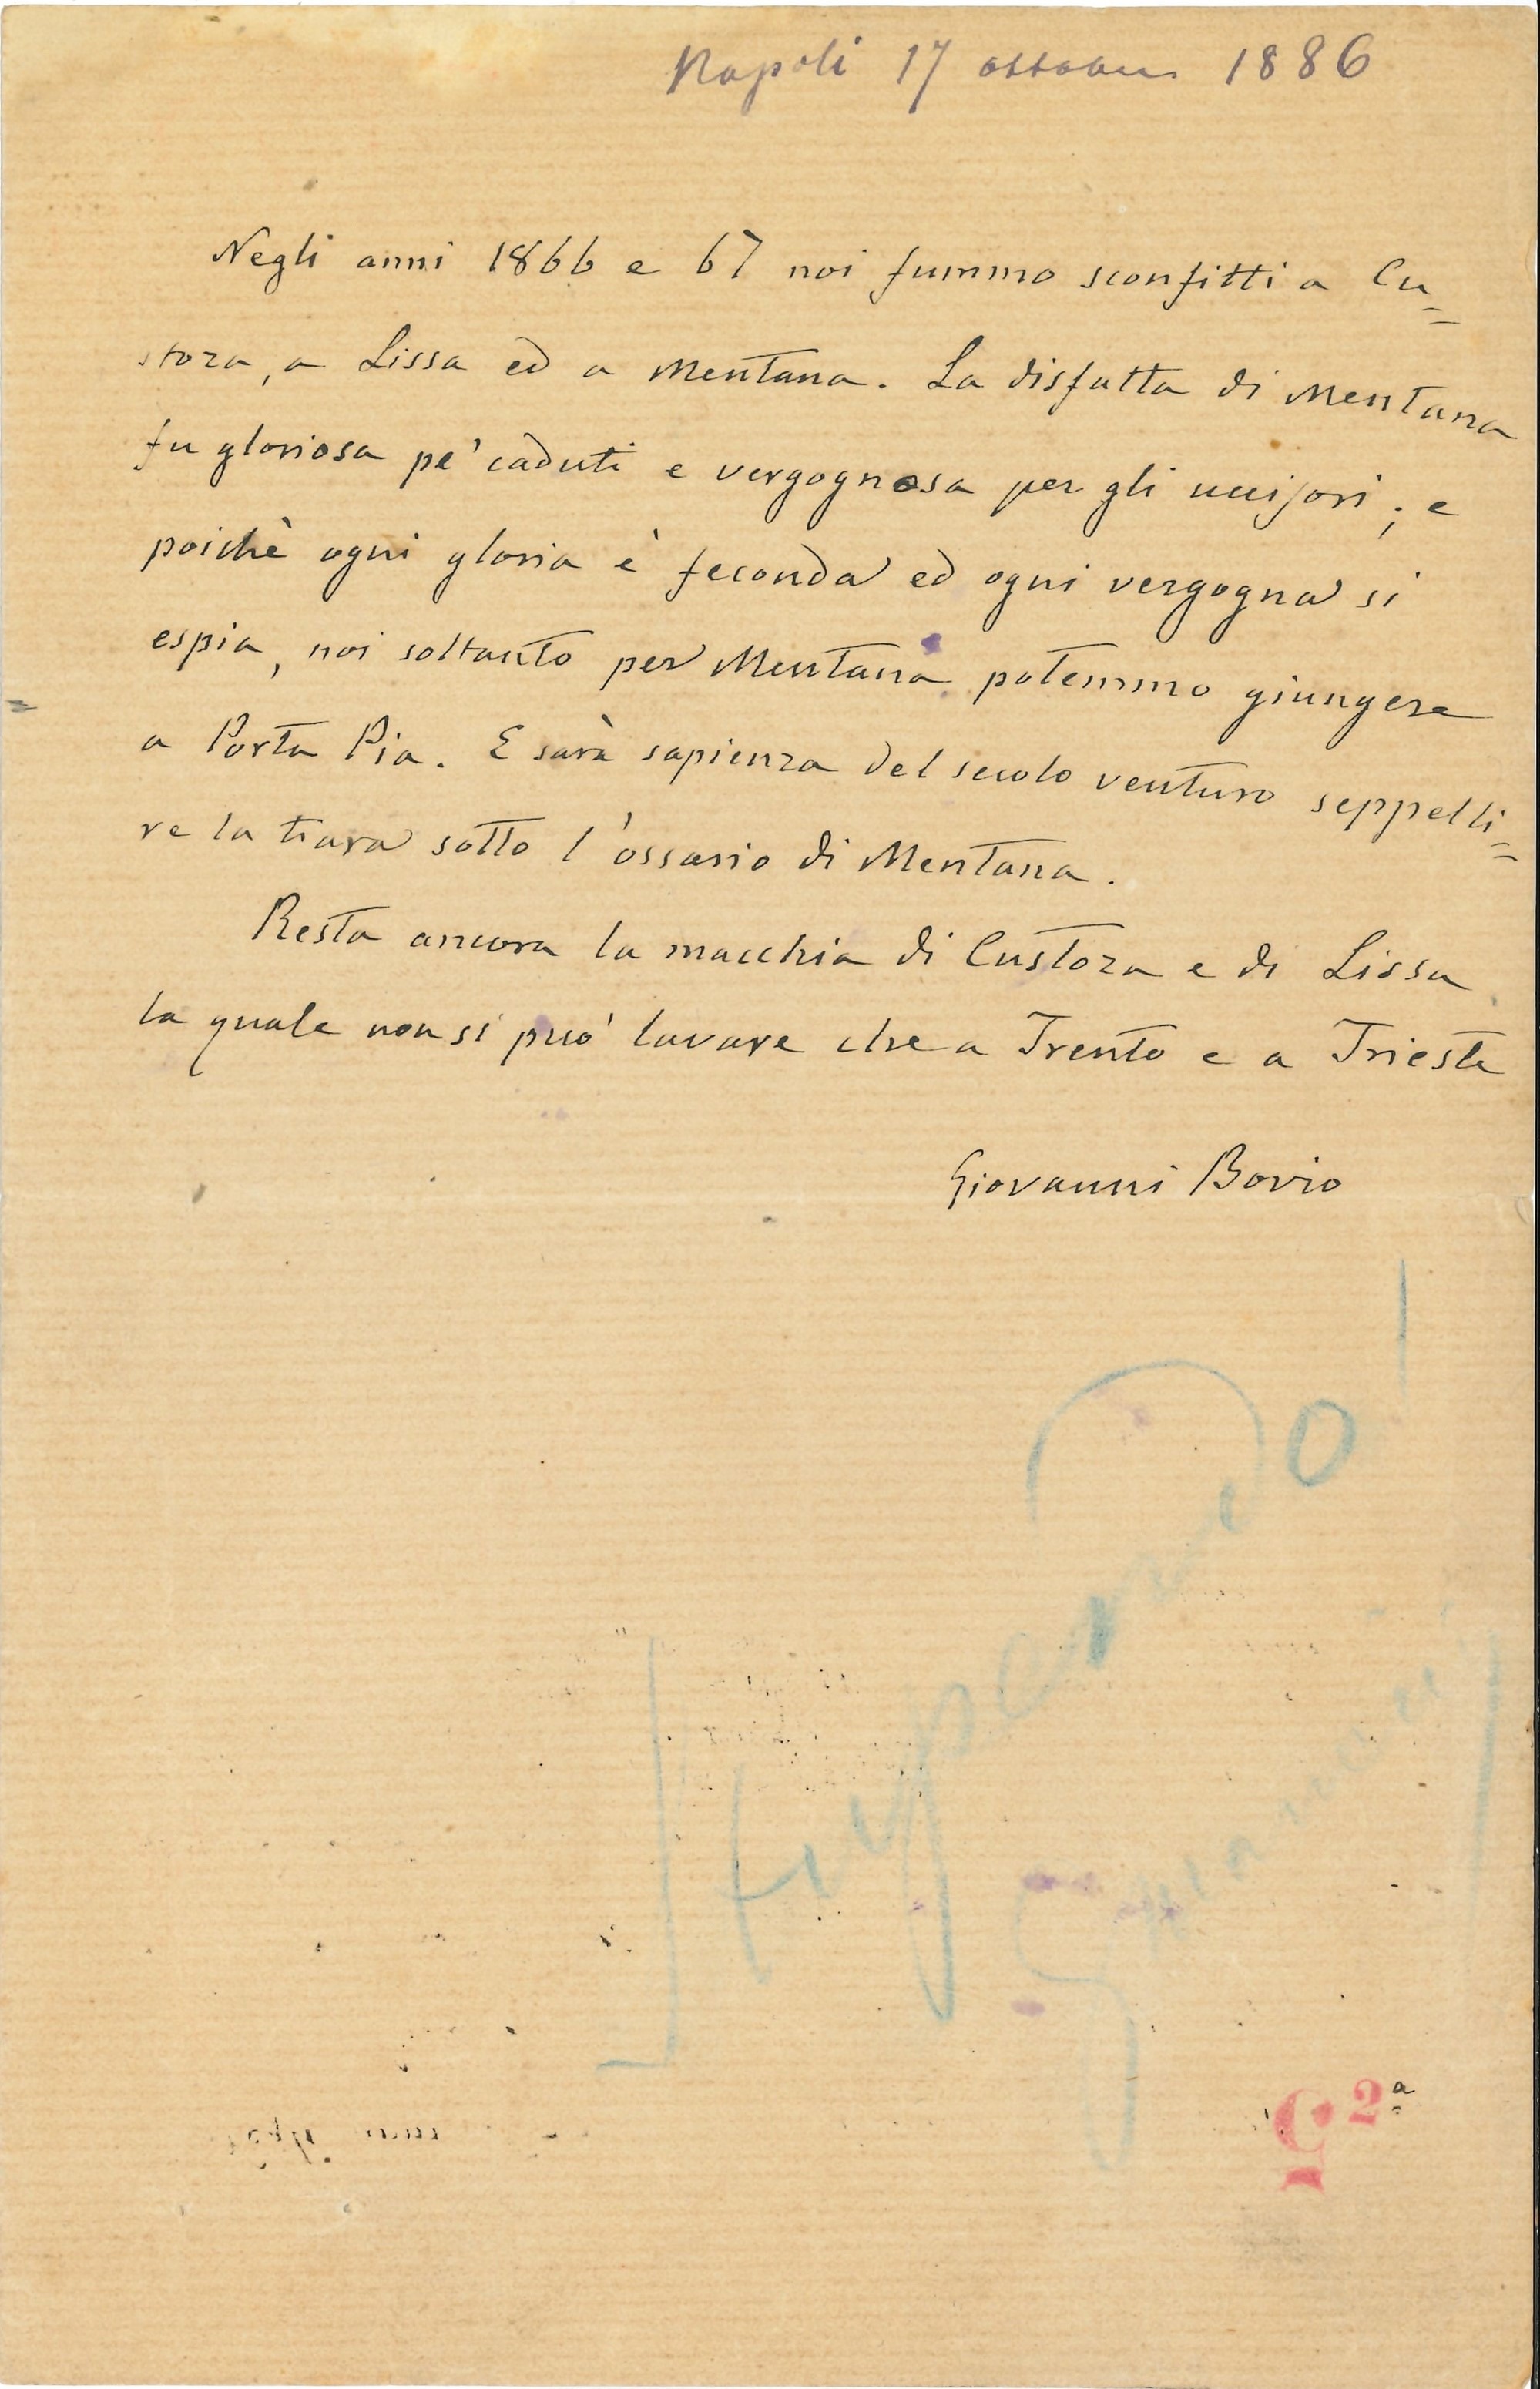 Napoli 17 ottobre 1886
Negli anni 1866 e 67 noi fummo sconfitti a Cu=
stoza, a Lissa ed a Mentana. La disfatta di Mentana
fu gloriosa pe' caduti e vergognosa per gli uccisori; e
poichè ogni gloria è feconda ed ogni vergogna si
espia, noi soltanto per Mentana potemmo giungere
a Porta Pia. E sarà sapienza del secolo venturo seppelli=
re la tiara sotto l'ossario di Mentana.
Resta ancora la macchia di Custoza e di Lissa
la quale non si può lavare che a Trento e a Trieste
Giovanni Bovio
2ª